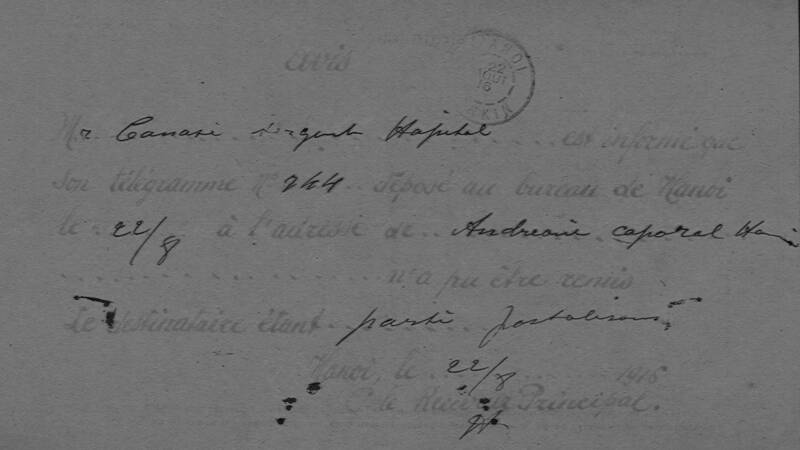 Avis
HANOI
22
AOUT
16
TONKIN
Mr Canari sergent Hôpital est informé que
son télégramme No 244 déposé au bureau de Hanoi
le 22/8 à l'adresse de Andreani caporal
n'a pu être remis
Le destinataire étant parti postalisons
Hanoi, le 22/8 1916
Le Receveur Principal.